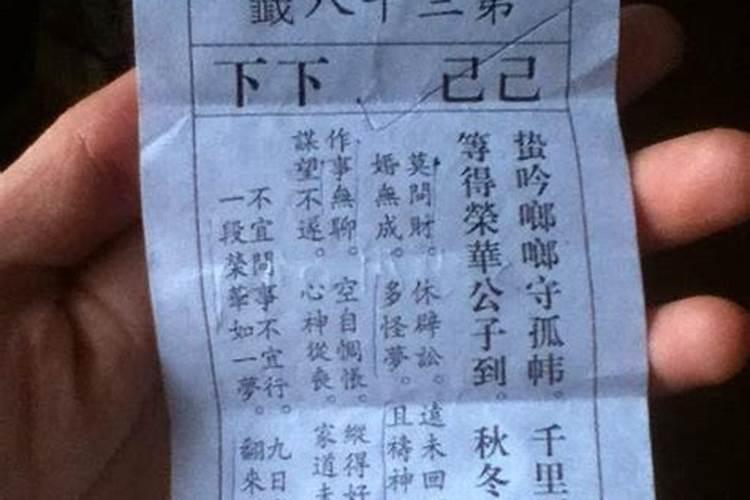 第三十八籤
己己 下下
蛩吟啷啷守孤幃。千里
等得榮華公子到。秋冬
莫問財。休辟訟。遠未回
婚無成。多怪夢。且禱神
作事無聊。空自惆悵。縱得好
謀望不遂。心神從喪。家道
不宜問事不宜行。九日
一段榮華如一夢。翻來